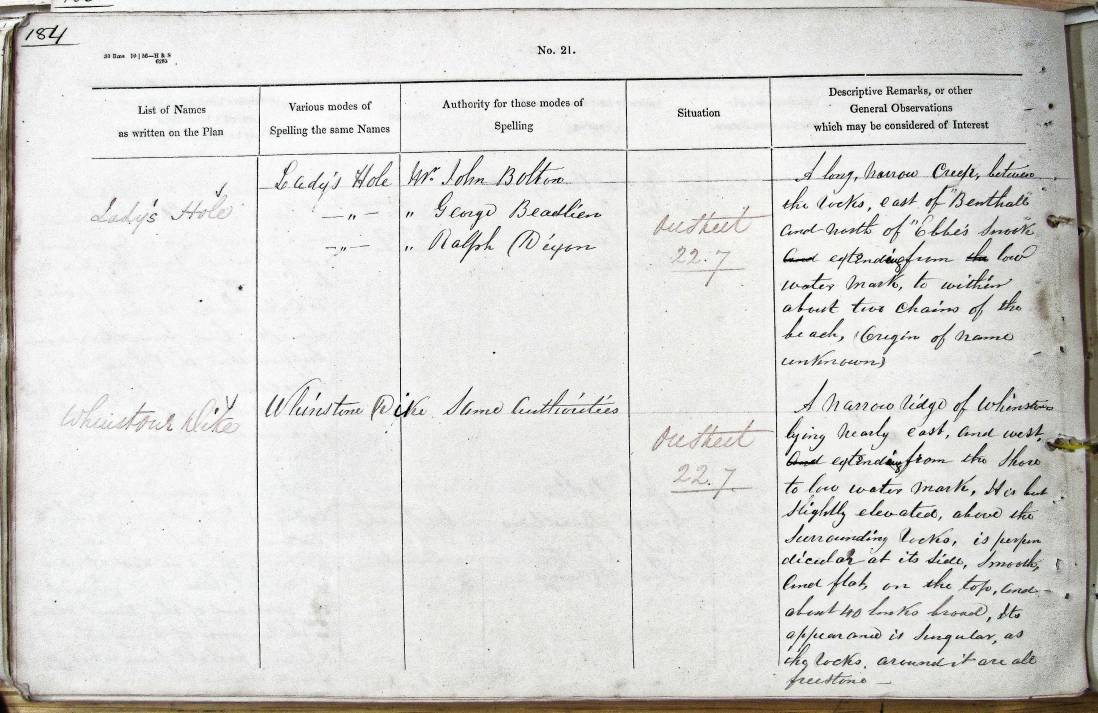 184
No. 21.
List of Names
as written on the Plan
Various modes of
Spelling the same Names
Authority for those modes of
Spelling
Situation
Descriptive Remarks, or other
General Observations
which may be considered of Interest
Lady's Hole
Lady's Hole
—„—
—„—
Mr. John Bolton
„ George Beadlien
„ Ralph Dixon
On Sheet
22.7
A long, narrow Creek, between
the rocks, east of "Benthall"
and north of "Ebbe's Snook"
and extending from the low
water mark, to within
about two chains of the
beach, (Origin of name
unknown)
Whinstone Dike
Whinstone Dike
Same Authorities
On Sheet
22.7
A narrow ridge of Whinstone
lying nearly east, and west,
and extending from the shore
to low water mark, It is but
slightly elevated, above the
surrounding rocks, is perpen
dicular at its side, smooth,
and flat, on the top, and
about 40 links broad, Its
appearance is singular, as
the rocks, around it are all
freestone —